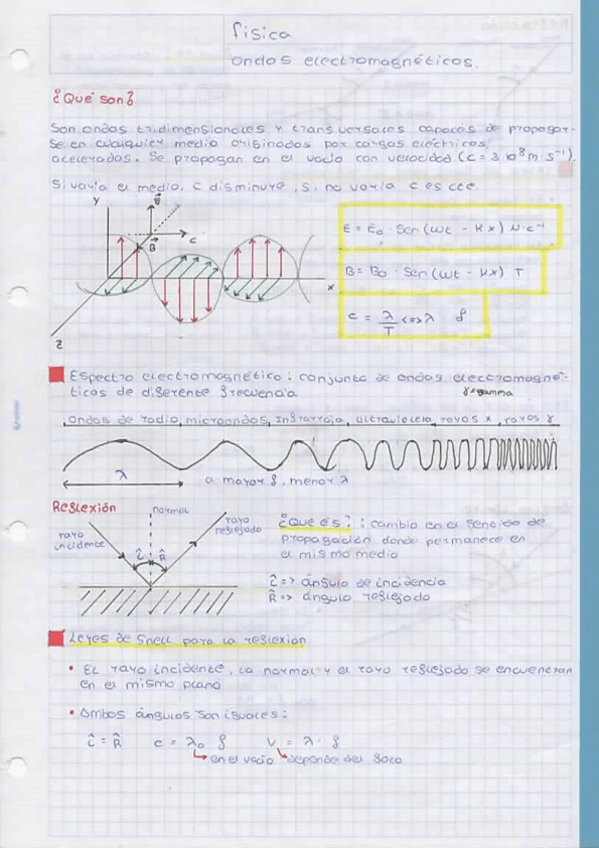 física
ondas electromagnéticas.
¿Qué son?
Son ondas tridimensionales y transversales capaces de propagar-
se en cualquier medio originados por cargas eléctricas
aceleradas. Se propagan en el vacío con velocidad (c = 3 10⁸ m·s⁻¹).
Si varía el medio, c disminuye, si no varía c es cte.
Y
E
B
c
x
z
E = E₀ · Sen (ωt - Kx) N·c⁻¹
B = B₀ · Sen (ωt - Kx) T
c = λ/T <=> λ f
Espectro electromagnético: conjunto de ondas electromagné-
ticas de diferente frecuencia
γ=gamma
Ondas de radio, microondas, Infrarroja, ultravioleta, rayos x, rayos γ
λ
a mayor f, menor λ
Reflexión
normal
rayo incidente
rayo reflejado
î R̂
¿Qué es?: cambio en el sentido de
propagación donde permanece en
el mismo medio
î => ángulo de incidencia
R̂ => ángulo reflejado
Leyes de Snell para la reflexión
• El rayo incidente, la normal y el rayo reflejado se encuentran
en el mismo plano
• Ambos ángulos son iguales:
î = R̂ c = λ₀ f V = λ · f
en el vacío depende del foco